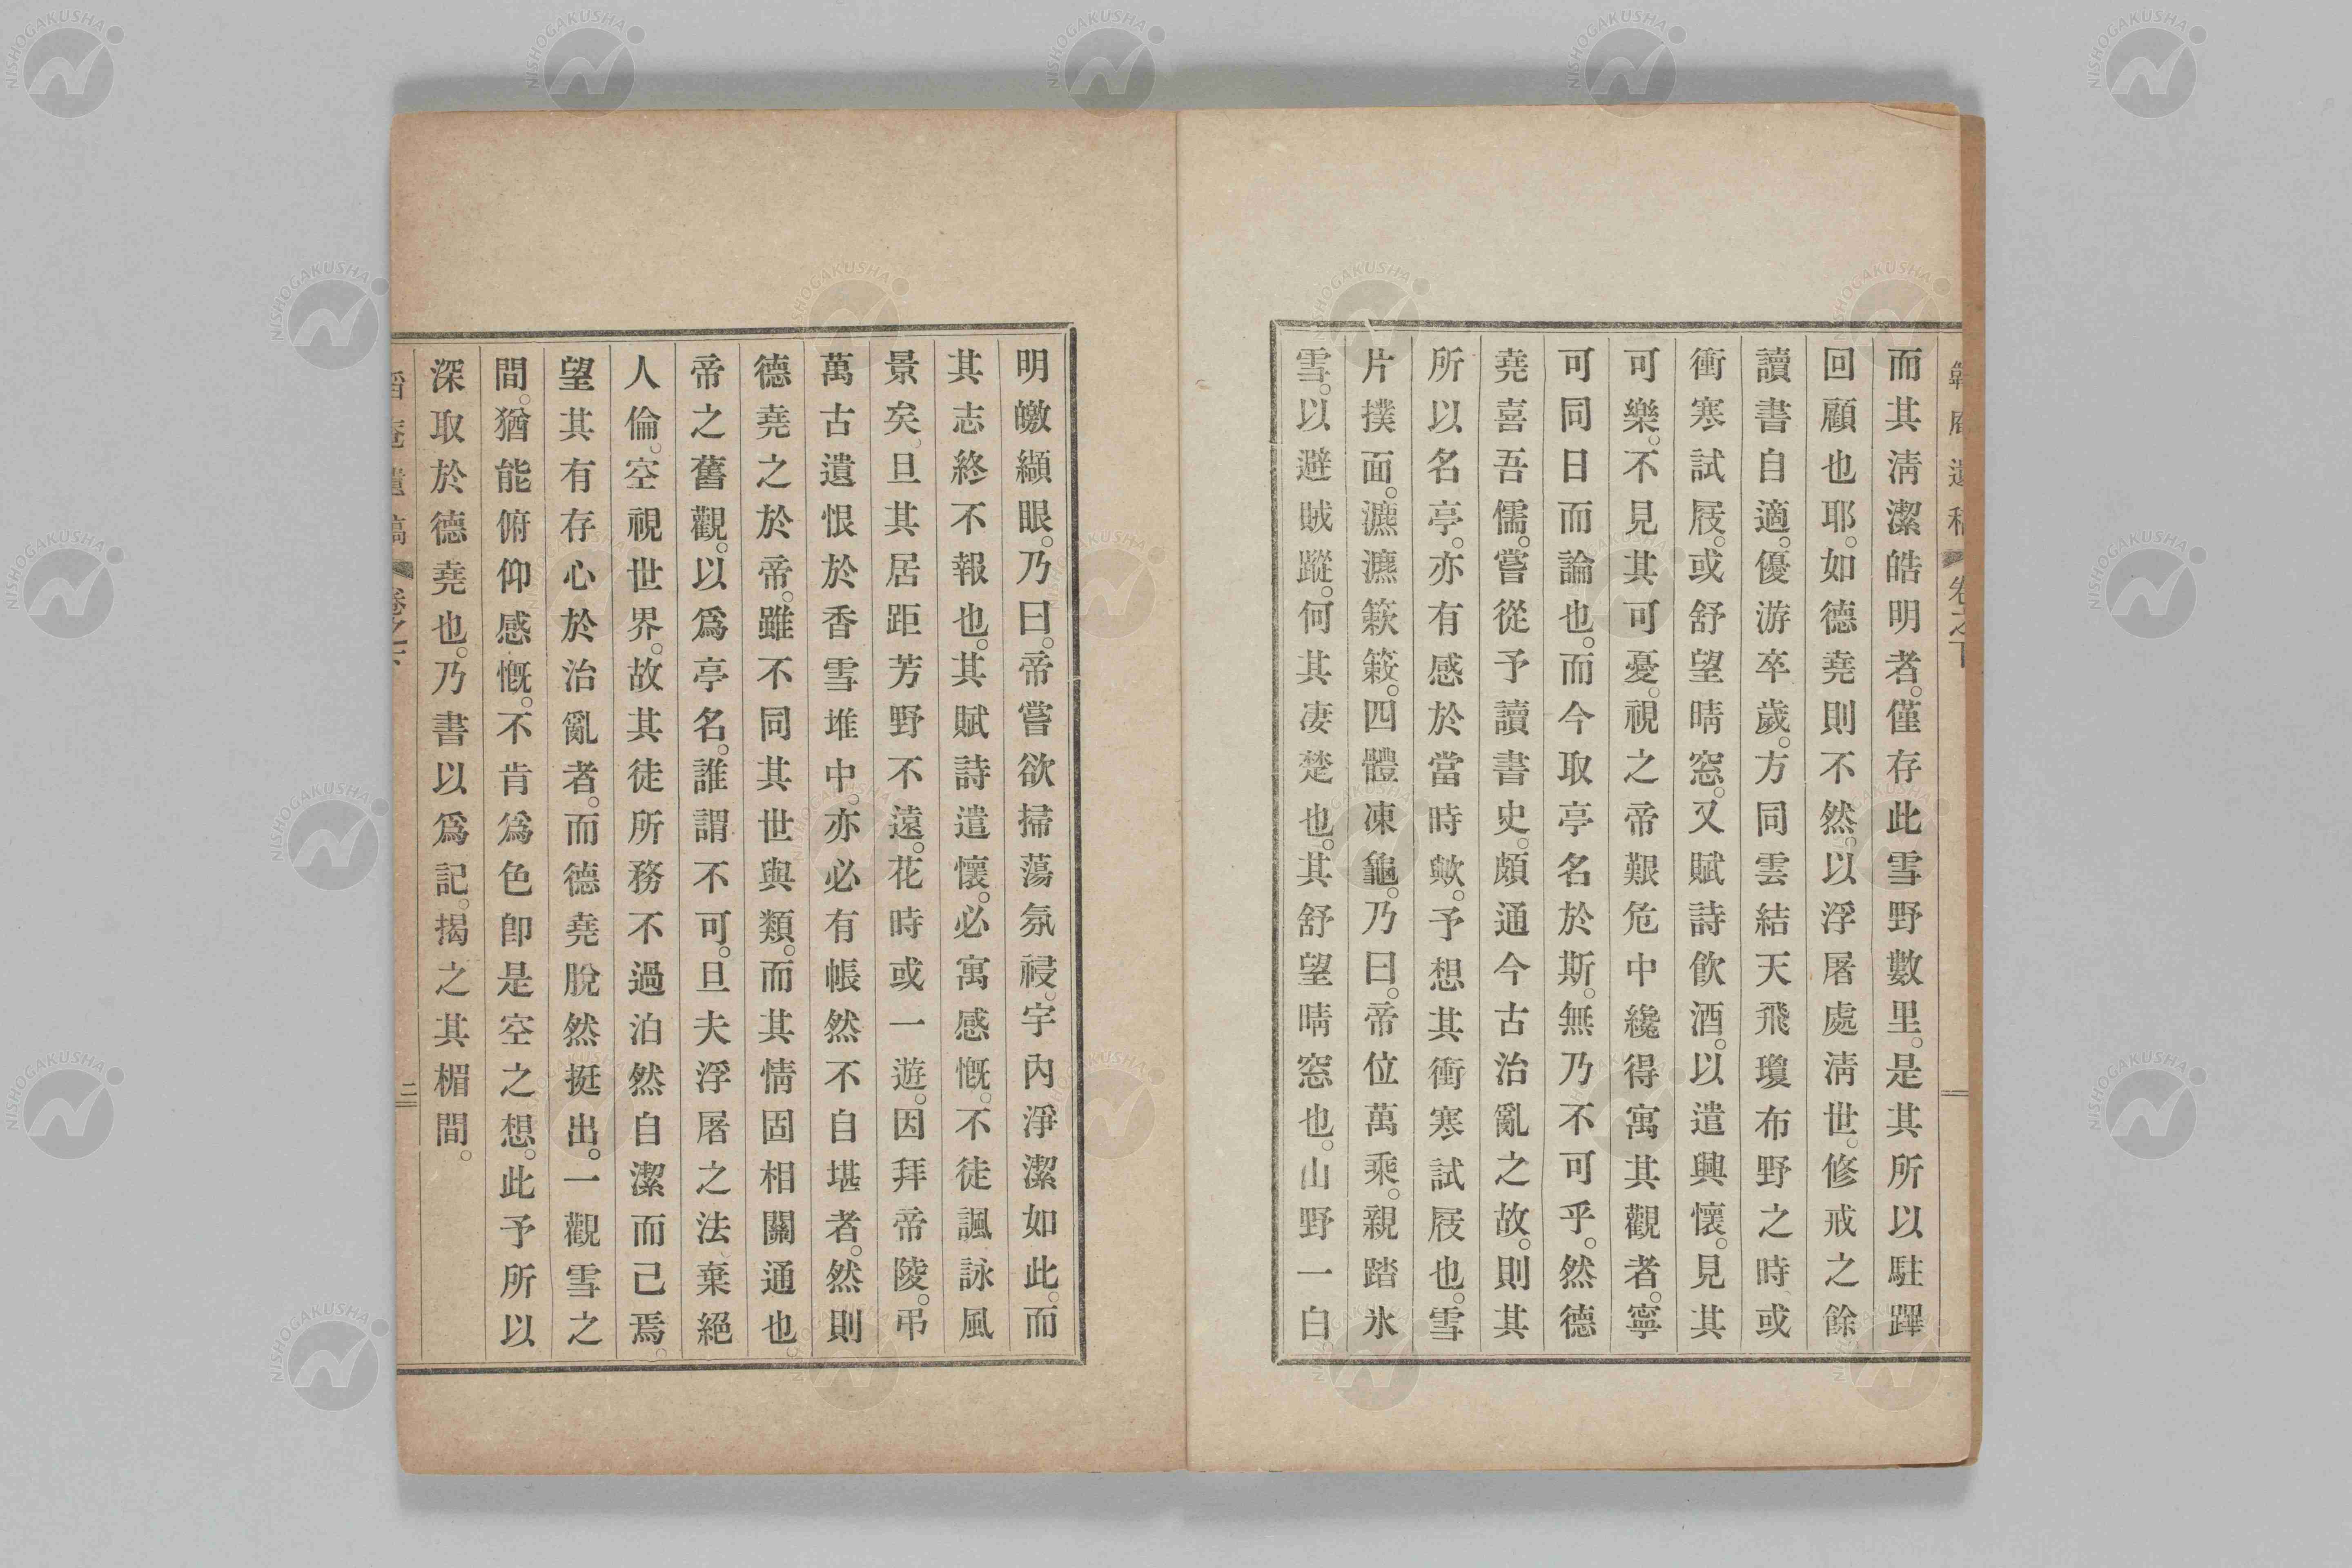 而其淸潔皓明者。僅存此雪野數里。是其所以駐蹕
回顧也耶。如德堯則不然。以浮屠處淸世。修戒之餘
讀書自適。優游卒歲。方同雲結天飛瓊布野之時或
衝寒試屐。或舒望晴窓。又賦詩飮酒。以遣興懷。見其
可樂。不見其可憂。視之帝艱危中纔得寓其觀者。寧
可同日而論也。而今取亭名於斯。無乃不可乎。然德
堯喜吾儒。嘗從予讀書史。頗通今古治亂之故。則其
所以名亭。亦有感於當時歟。予想其衝寒試屐也。雪
片撲面。瀌瀌簌簌。四體凍龜。乃曰。帝位萬乘。親踏氷
雪。以避賊蹤。何其凄楚也。其舒望晴窓也。山野一白
明皦纈眼。乃曰。帝嘗欲掃蕩氛祲。宇內淨潔如此。而
其志終不報也。其賦詩遣懷。必寓感慨。不徒諷詠風
景矣。旦其居距芳野不遠。花時或一遊。因拜帝陵。弔
萬古遺恨於香雪堆中。亦必有帳然不自堪者。然則
德堯之於帝。雖不同其世與類。而其情固相關通也
帝之舊觀。以爲亭名。誰謂不可。旦夫浮屠之法棄絕
人倫。空視世界。故其徒所務不過泊然自潔而已焉。
望其有存心於治亂者。而德堯脫然挺出。一觀雪之
間。猶能俯仰感慨。不肯爲色卽是空之想。此予所以
深取於德堯也。乃書以爲記。揭之其楣間。
卷之下
二
NISHOGAKUSHA